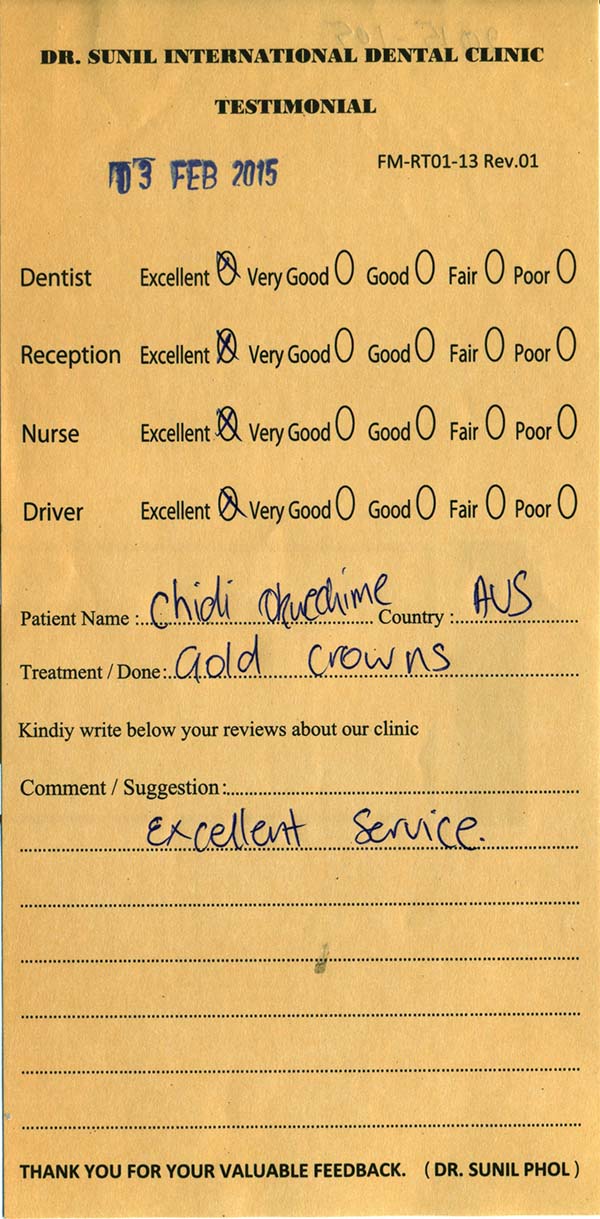 DR. SUNIL INTERNATIONAL DENTAL CLINIC
TESTIMONIAL
03 FEB 2015
FM-RT01-13 Rev.01
Dentist Excellent Very Good Good Fair Poor
Reception Excellent Very Good Good Fair Poor
Nurse Excellent Very Good Good Fair Poor
Driver Excellent Very Good Good Fair Poor
Patient Name : Chidi Country : AUS
Treatment / Done : Gold Crowns
Kindiy write below your reviews about our clinic
Comment / Suggestion :
Excellent Service.
THANK YOU FOR YOUR VALUABLE FEEDBACK. ( DR. SUNIL PHOL )